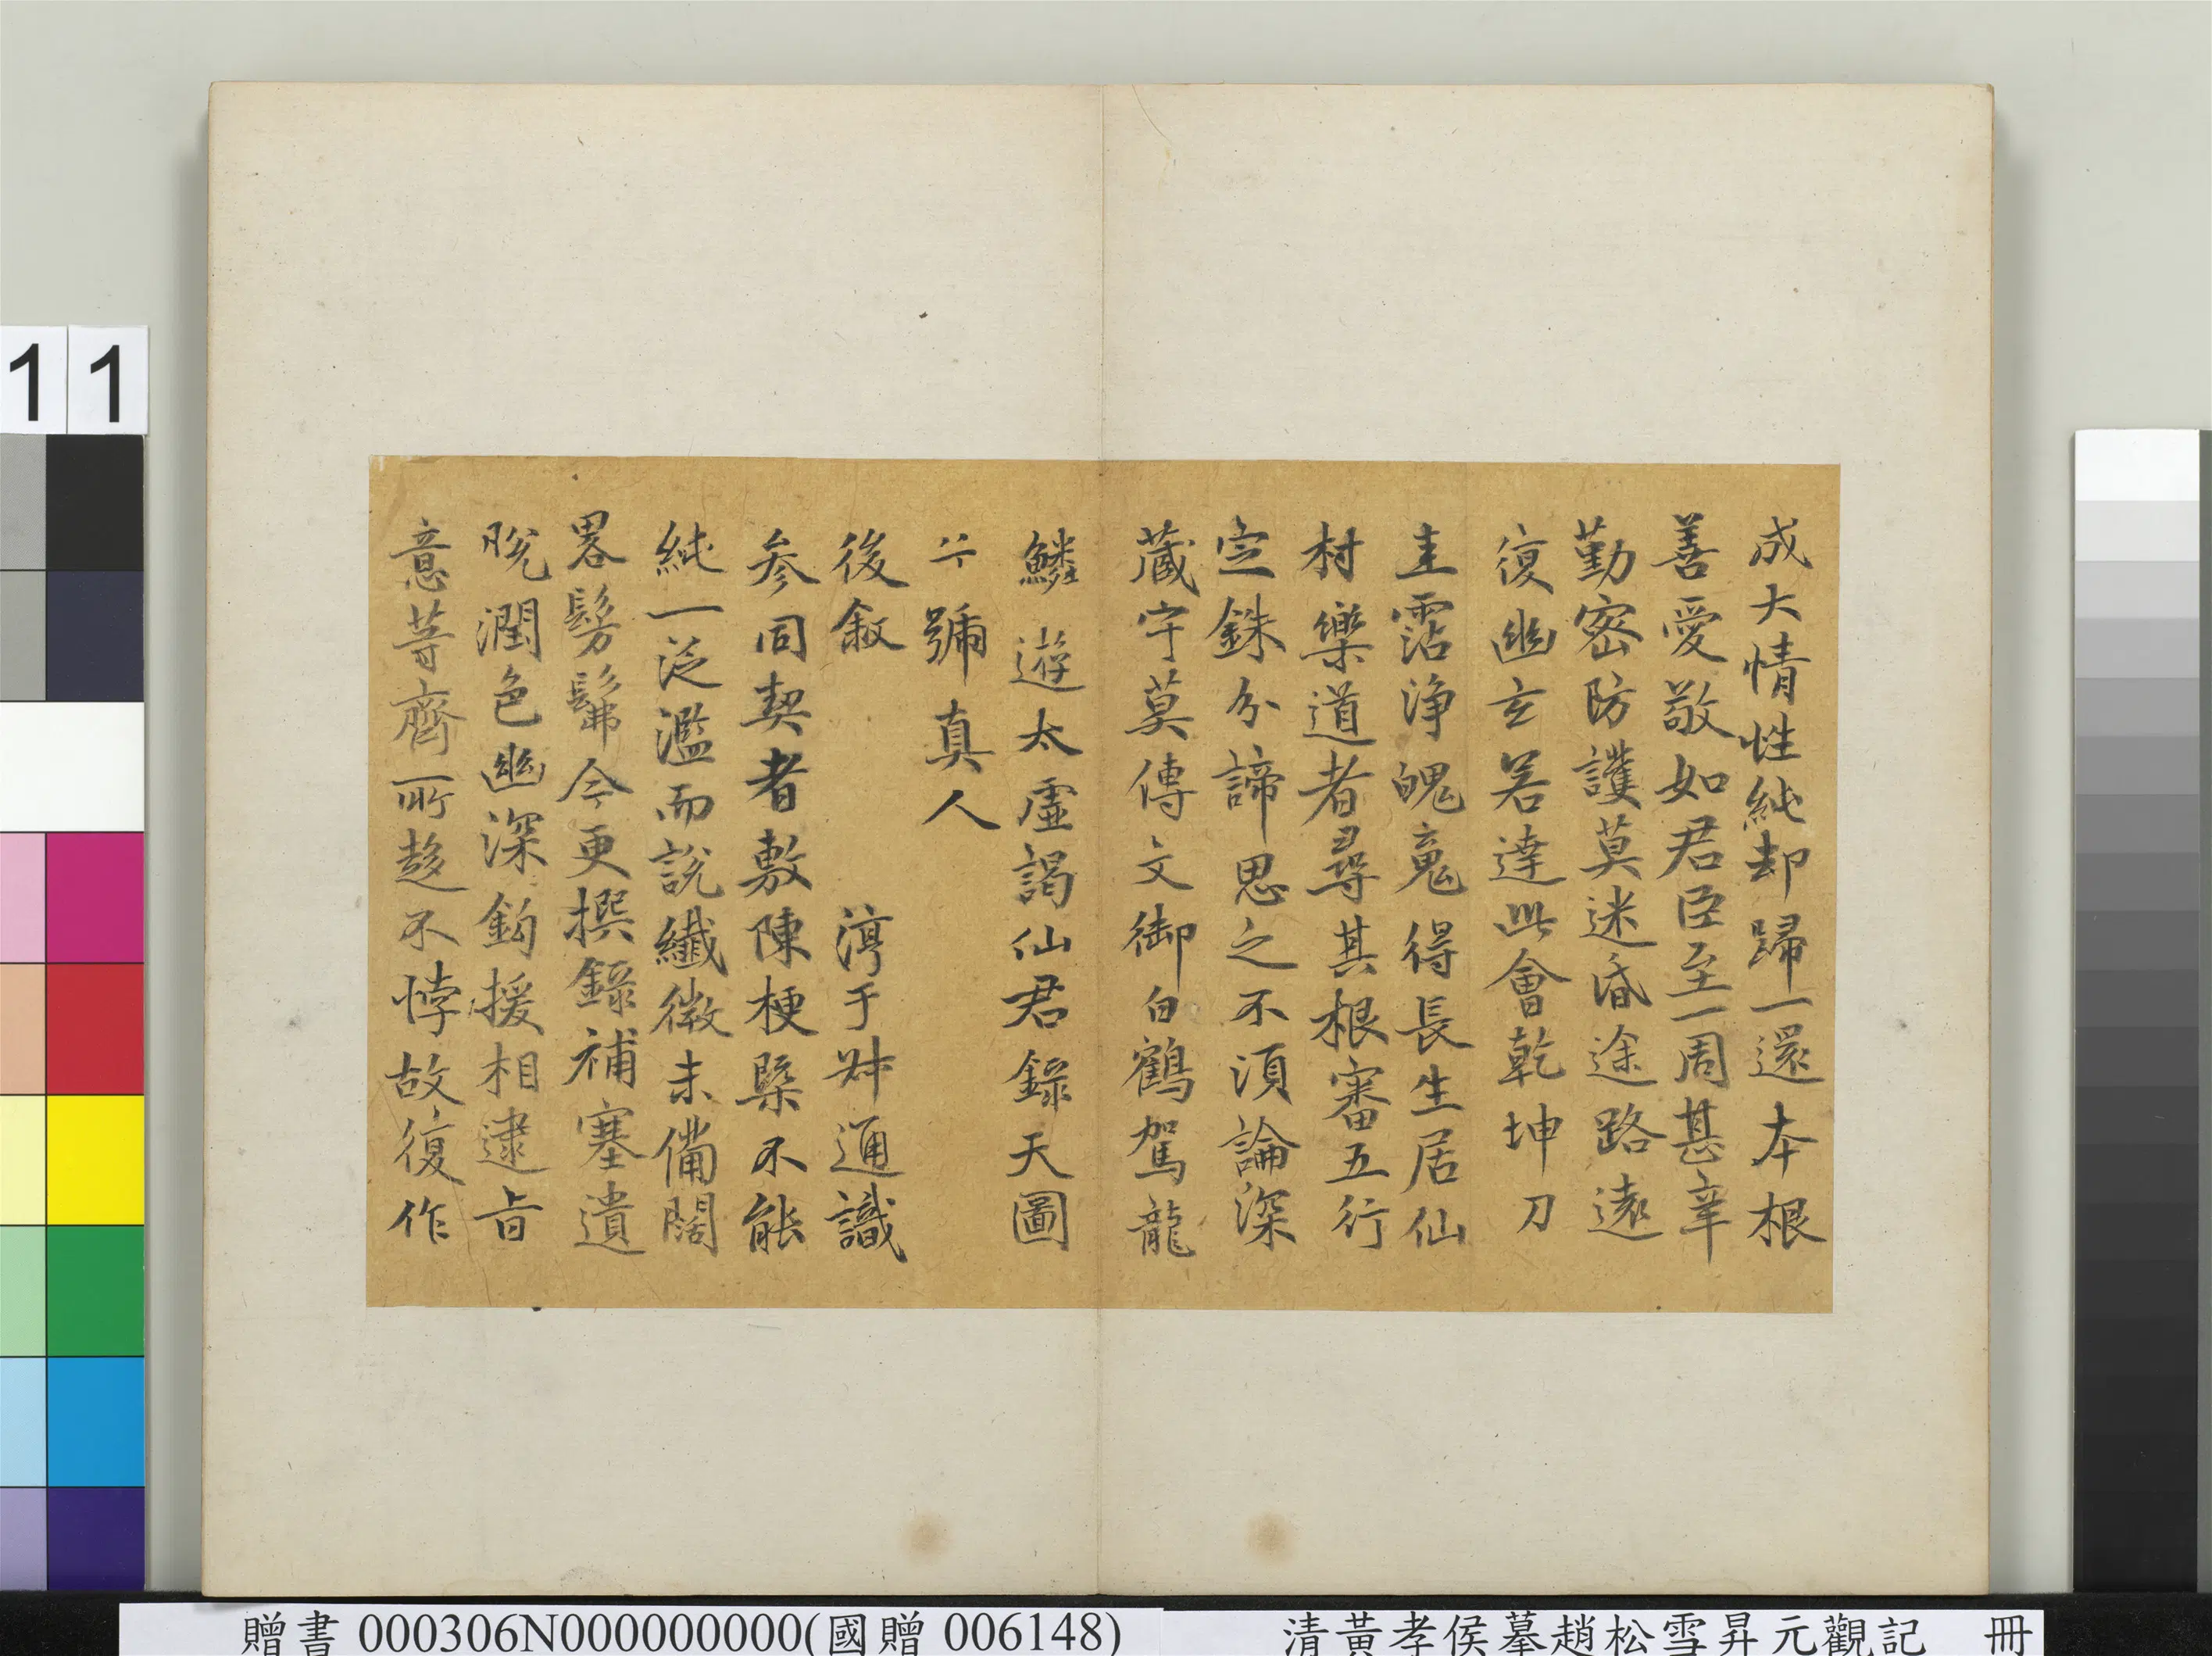 成大情性純却歸一還本根
善愛敬如君臣至一周甚辛
勤密防護莫迷昏途路遠
復幽玄若達此會乾坤刀
圭霑淨魄魂得長生居仙
村樂道者尋其根審五行
定銖分諦思之不須論深
藏守莫傳文御白鶴駕龍
鱗遊太虛謁仙君錄天圖
兮號真人
後敘　淳于叔通識
參同契者敷陳梗槩不能
純一泛濫而說纖微未備闊
畧髣髴今更撰錄補塞遺
脫潤色幽深鉤援相逮旨
意等齊所趍不悖故復作
11
贈書 000306N000000000(國贈 006148)
清黃孝侯摹趙松雪昇元觀記　冊